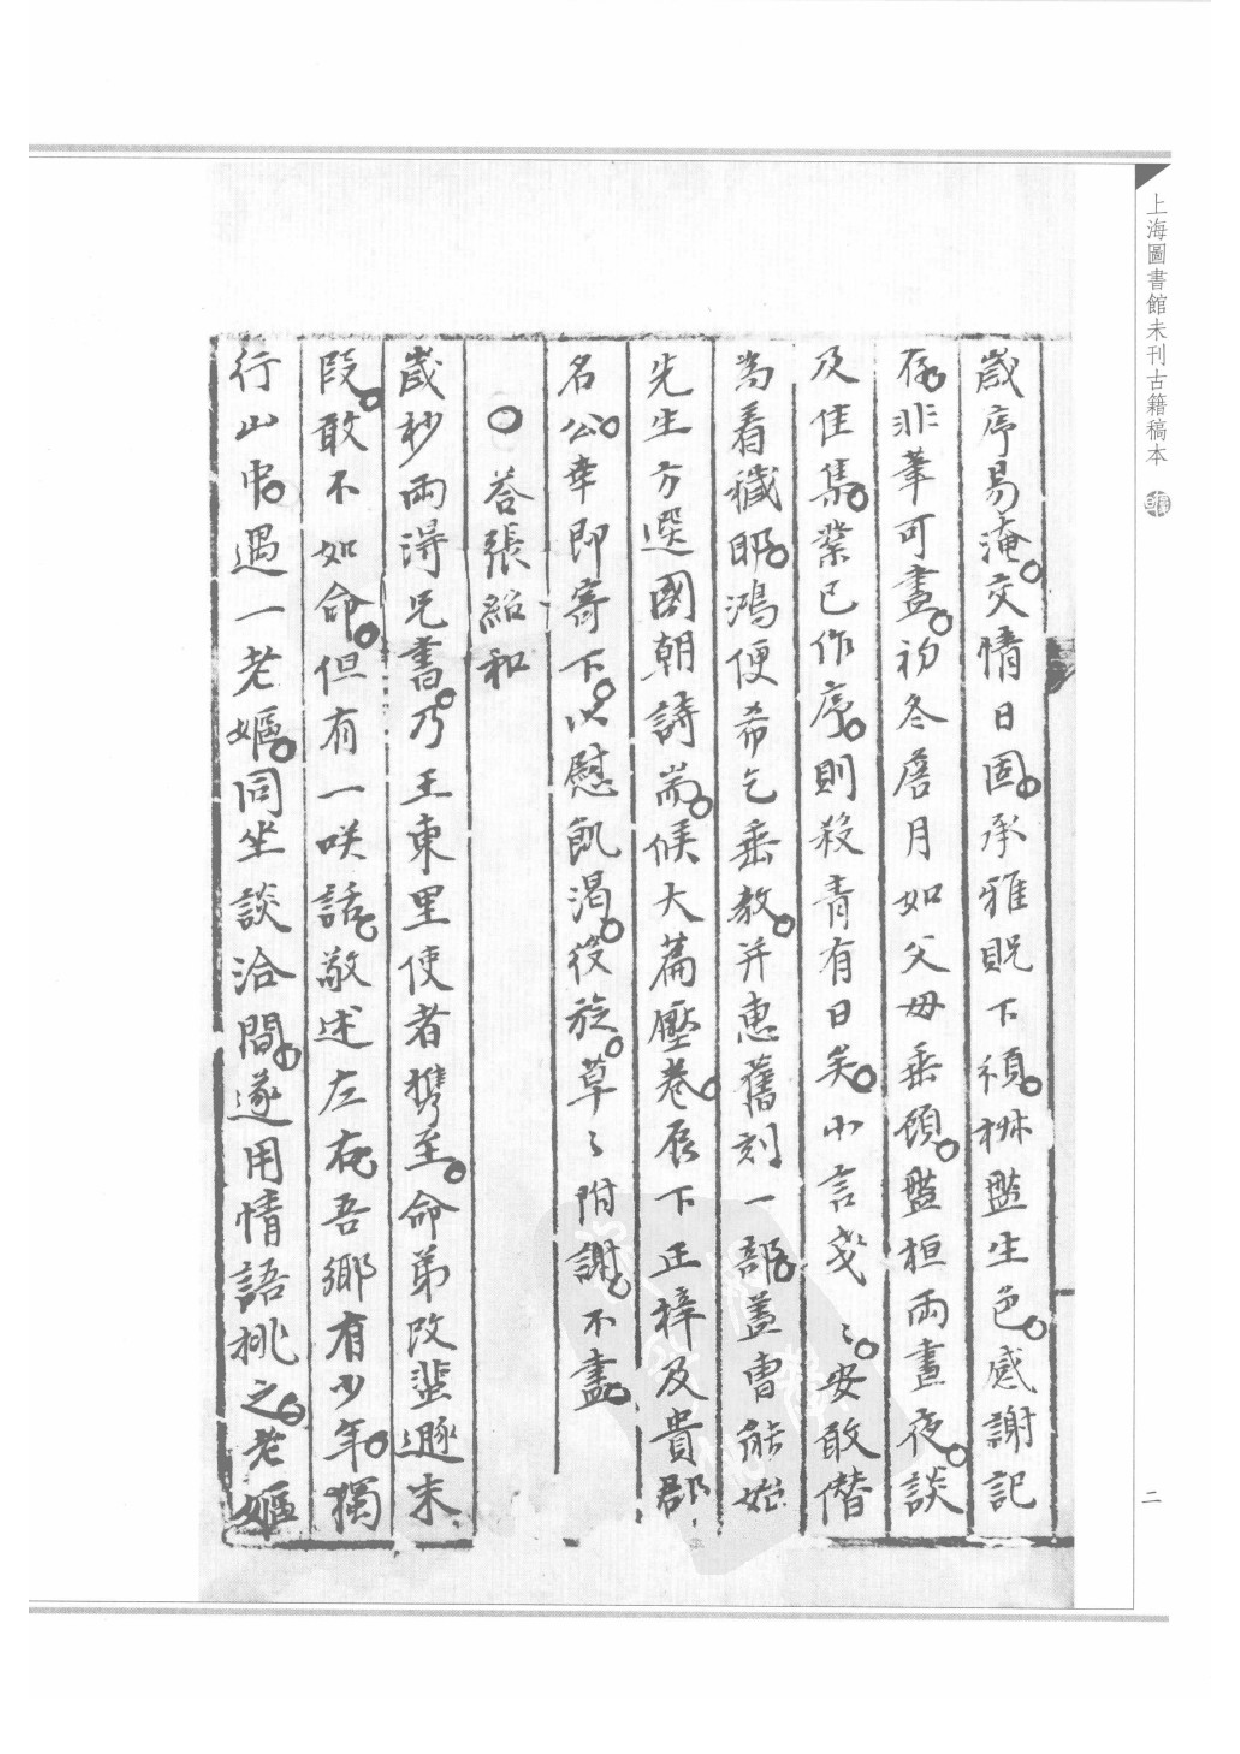 上海圖書館未刊古籍稿本
二
歲序易淹。交情日固。承雅貺下頒。楙盬生色。感謝記
存。非筆可盡。初冬詹月如父母垂顧。盤桓兩晝夜。談
及佳集。業已作序。則殺青有日矣。小言戔〻。安敢僭
為着穢耶。鴻便希乞垂教。并惠舊刻一部。蓋曹能始
先生方選國朝詩。耑候大篇壓卷。辰下正梓及貴郡
名公。幸即寄下。以慰飢渴。役旋。草〻附謝。不盡。
○答張紹和
歲杪兩得兄書。乃王東里使者携至。命弟改蜚遯末
段。敢不如命。但有一咲話。敬述左右。吾鄉有少年。獨
行山中。遇一老嫗。同坐談洽間。遂用情語挑之。老嫗